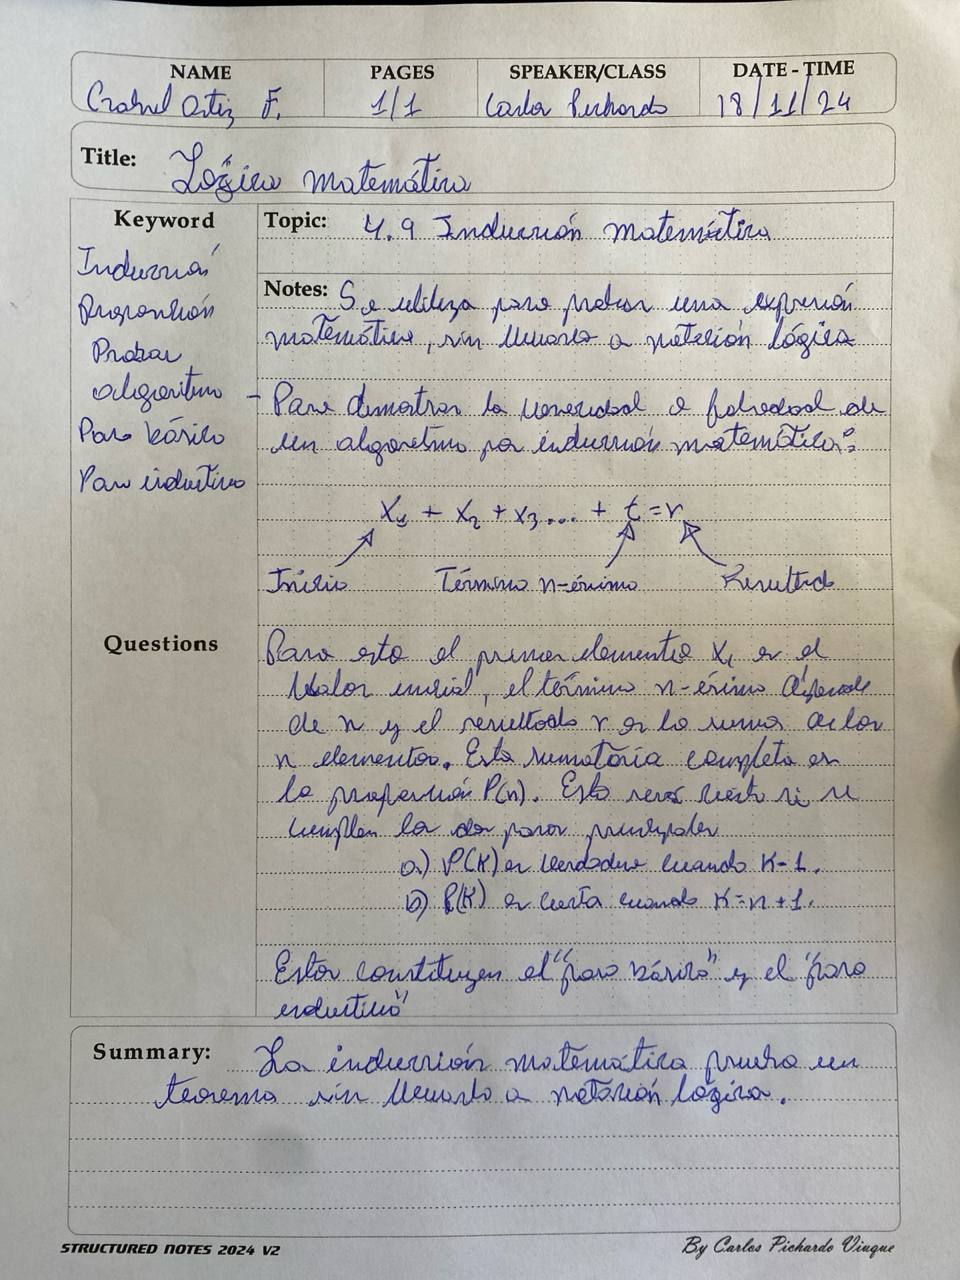 NAME PAGES SPEAKER/CLASS DATE - TIME
Ortiz F. 1/1 Carlos Pichardo 18/11/24
Title: Lógica matemática
Keyword
Inducción
Proposición
Probar
algoritmo
Paso básico
Paso inductivo
Questions
Topic: 4.9 Inducción matemática
Notes: Se utiliza para probar una expresión
matemática, sin llevarlo a notación lógica
- Para demostrar la veracidad o falsedad de
un algoritmo por inducción matemática:
X₁ + X₂ + X₃... + t = r
Inicio Término n-ésimo Resultado
Para esto el primer elemento X₁ es el
valor inicial, el término n-ésimo depende
de n y el resultado r es la suma de los
n elementos. Esta sumatoria completa es
la proposición P(n). Esto será cierto si se
cumplen los dos pasos principales
a) P(K) es verdadera cuando K=1.
b) P(K) es cierta cuando K=n+1.
Estos constituyen el "paso básico" y el "paso
inductivo"
Summary: La inducción matemática prueba un
teorema sin llevarlo a notación lógica.
STRUCTURED NOTES 2024 V2 By Carlos Pichardo Viuque